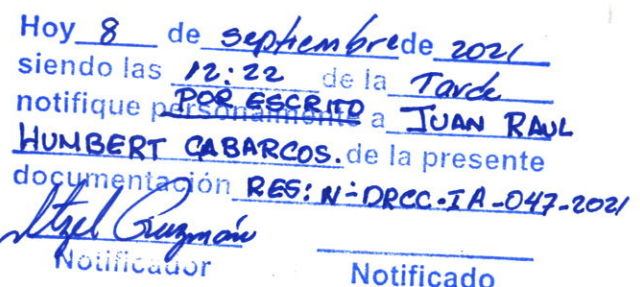 Hoy 8 de septiembre de 2021
siendo las 12:22 de la Tarde
notifique personalmente POR ESCRITO a JUAN RAUL
HUMBERT CABARCOS. de la presente
documentación RES: Nº DRCC-IA-047-2021
Itzel Guzmán
Notificador Notificado